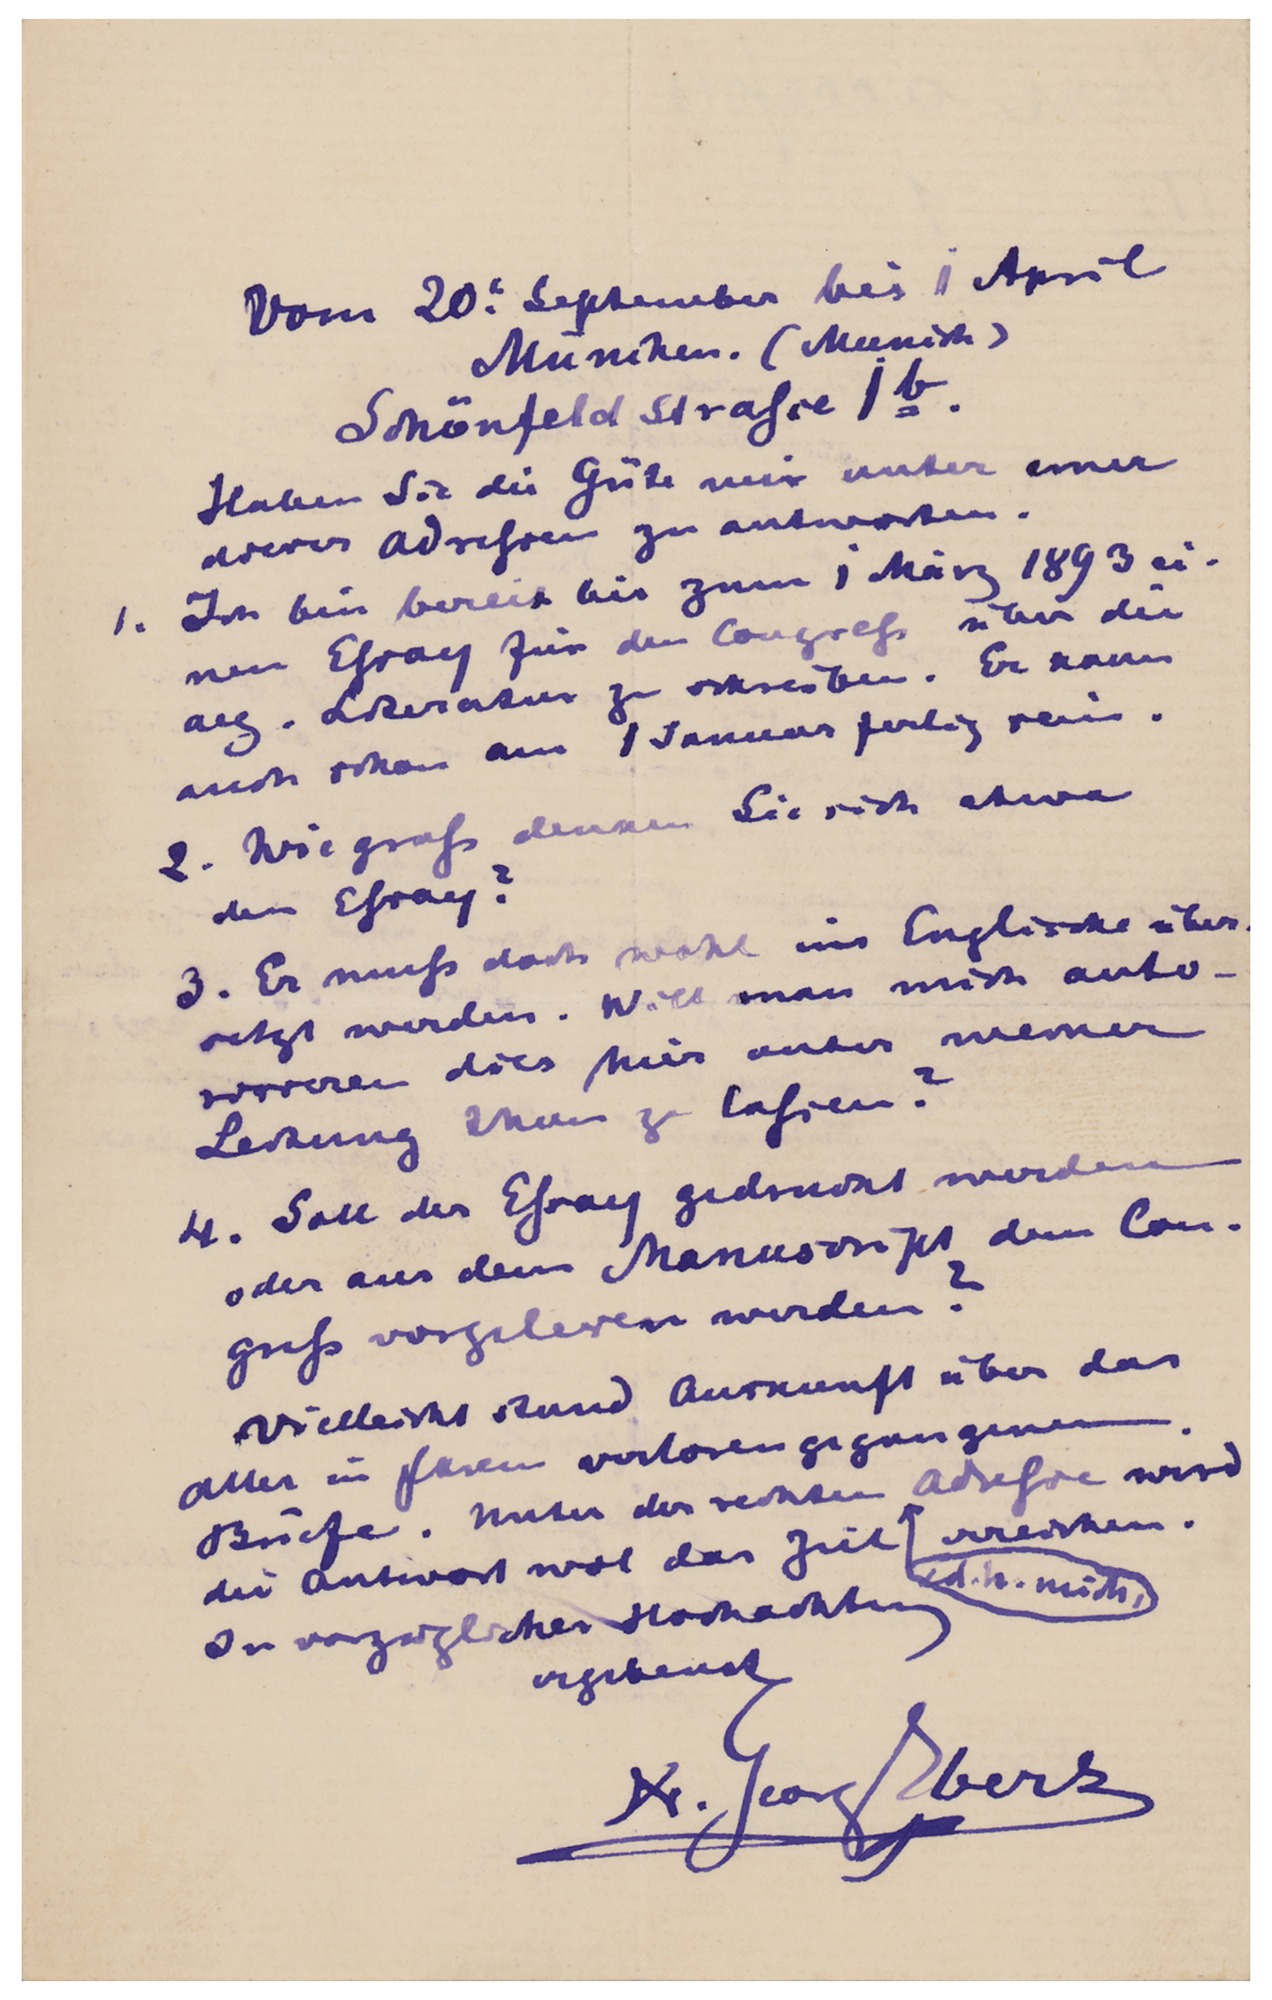 Vom 20t September bis 1 April
München. (Munich)
Schönfeld Straße 1 b.
Haben Sie die Güte mir unter einer
dieser Adressen zu antworten.
1. Ich bin bereit bis zum 1 März 1893 ei-
nen Eßay für den Congreß über die
aeg. Literatur zu schreiben. Er kann
auch schon am 1 Januar fertig sein.
2. Wie groß denken Sie sich etwa
den Eßay?
3. Er muß doch wohl ins Englische über-
setzt werden. Will man mich auto-
risieren dies hier unter meiner
Leitung thun zu laßen?
4. Soll der Eßay gedruckt werden
oder aus dem Manuscript dem Con-
greß vorgelesen werden?
Vielleicht stand Auskunft über das
alles in Ihrem verlorengegangenen
Briefe. Unter der rechten Adreße wird
die Antwort wol das Ziel erreichen.
d. h. mich,
In vorzüglicher Hochachtung
ergebenst
Dr. Georg Ebers